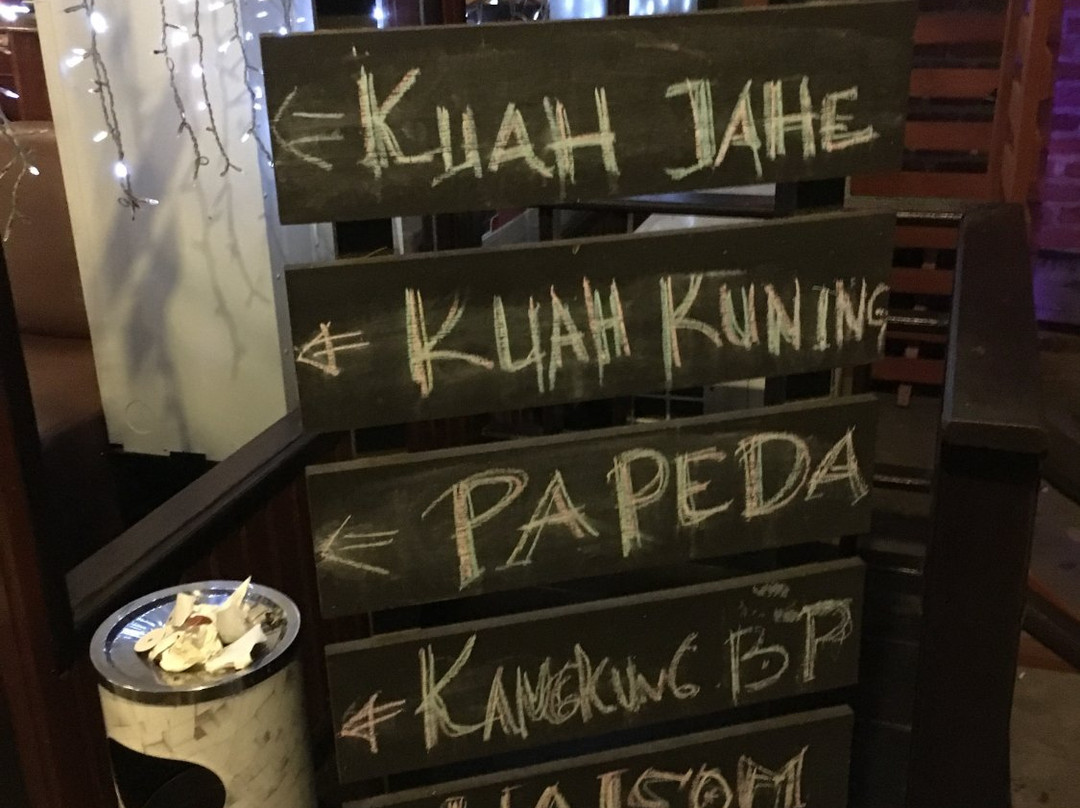 ← KUAH JAHE
← KUAH KUNING
← PAPEDA
← KANGKUNG BP